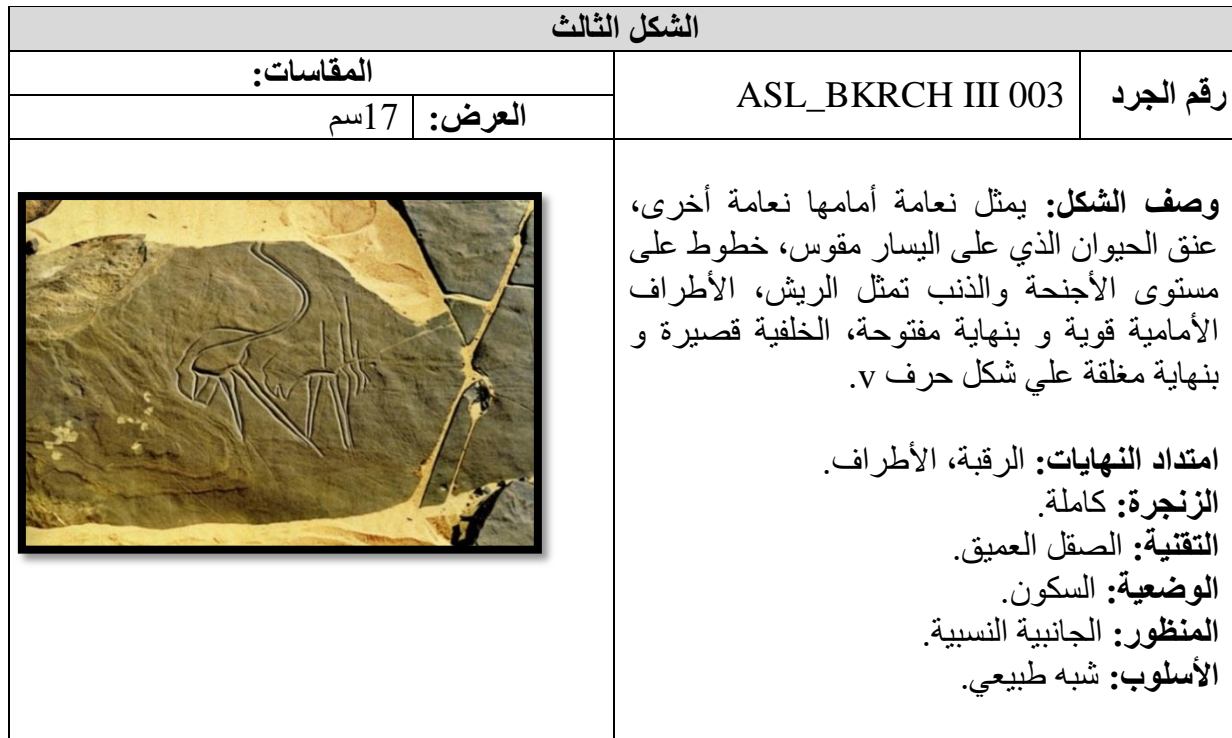 الشكل الثالث
رقم الجرد
ASL_BKRCH III 003
المقاسات:
العرض: 17سم
وصف الشكل: يمثل نعامة أمامها نعامة أخرى،
عنق الحيوان الذي على اليسار مقوس، خطوط على
مستوى الأجنحة والذنب تمثل الريش، الأطراف
الأمامية قوية و بنهاية مفتوحة، الخلفية قصيرة و
بنهاية مغلقة علي شكل حرف v.
امتداد النهايات: الرقبة، الأطراف.
الزنجرة: كاملة.
التقنية: الصقل العميق.
الوضعية: السكون.
المنظور: الجانبية النسبية.
الأسلوب: شبه طبيعي.